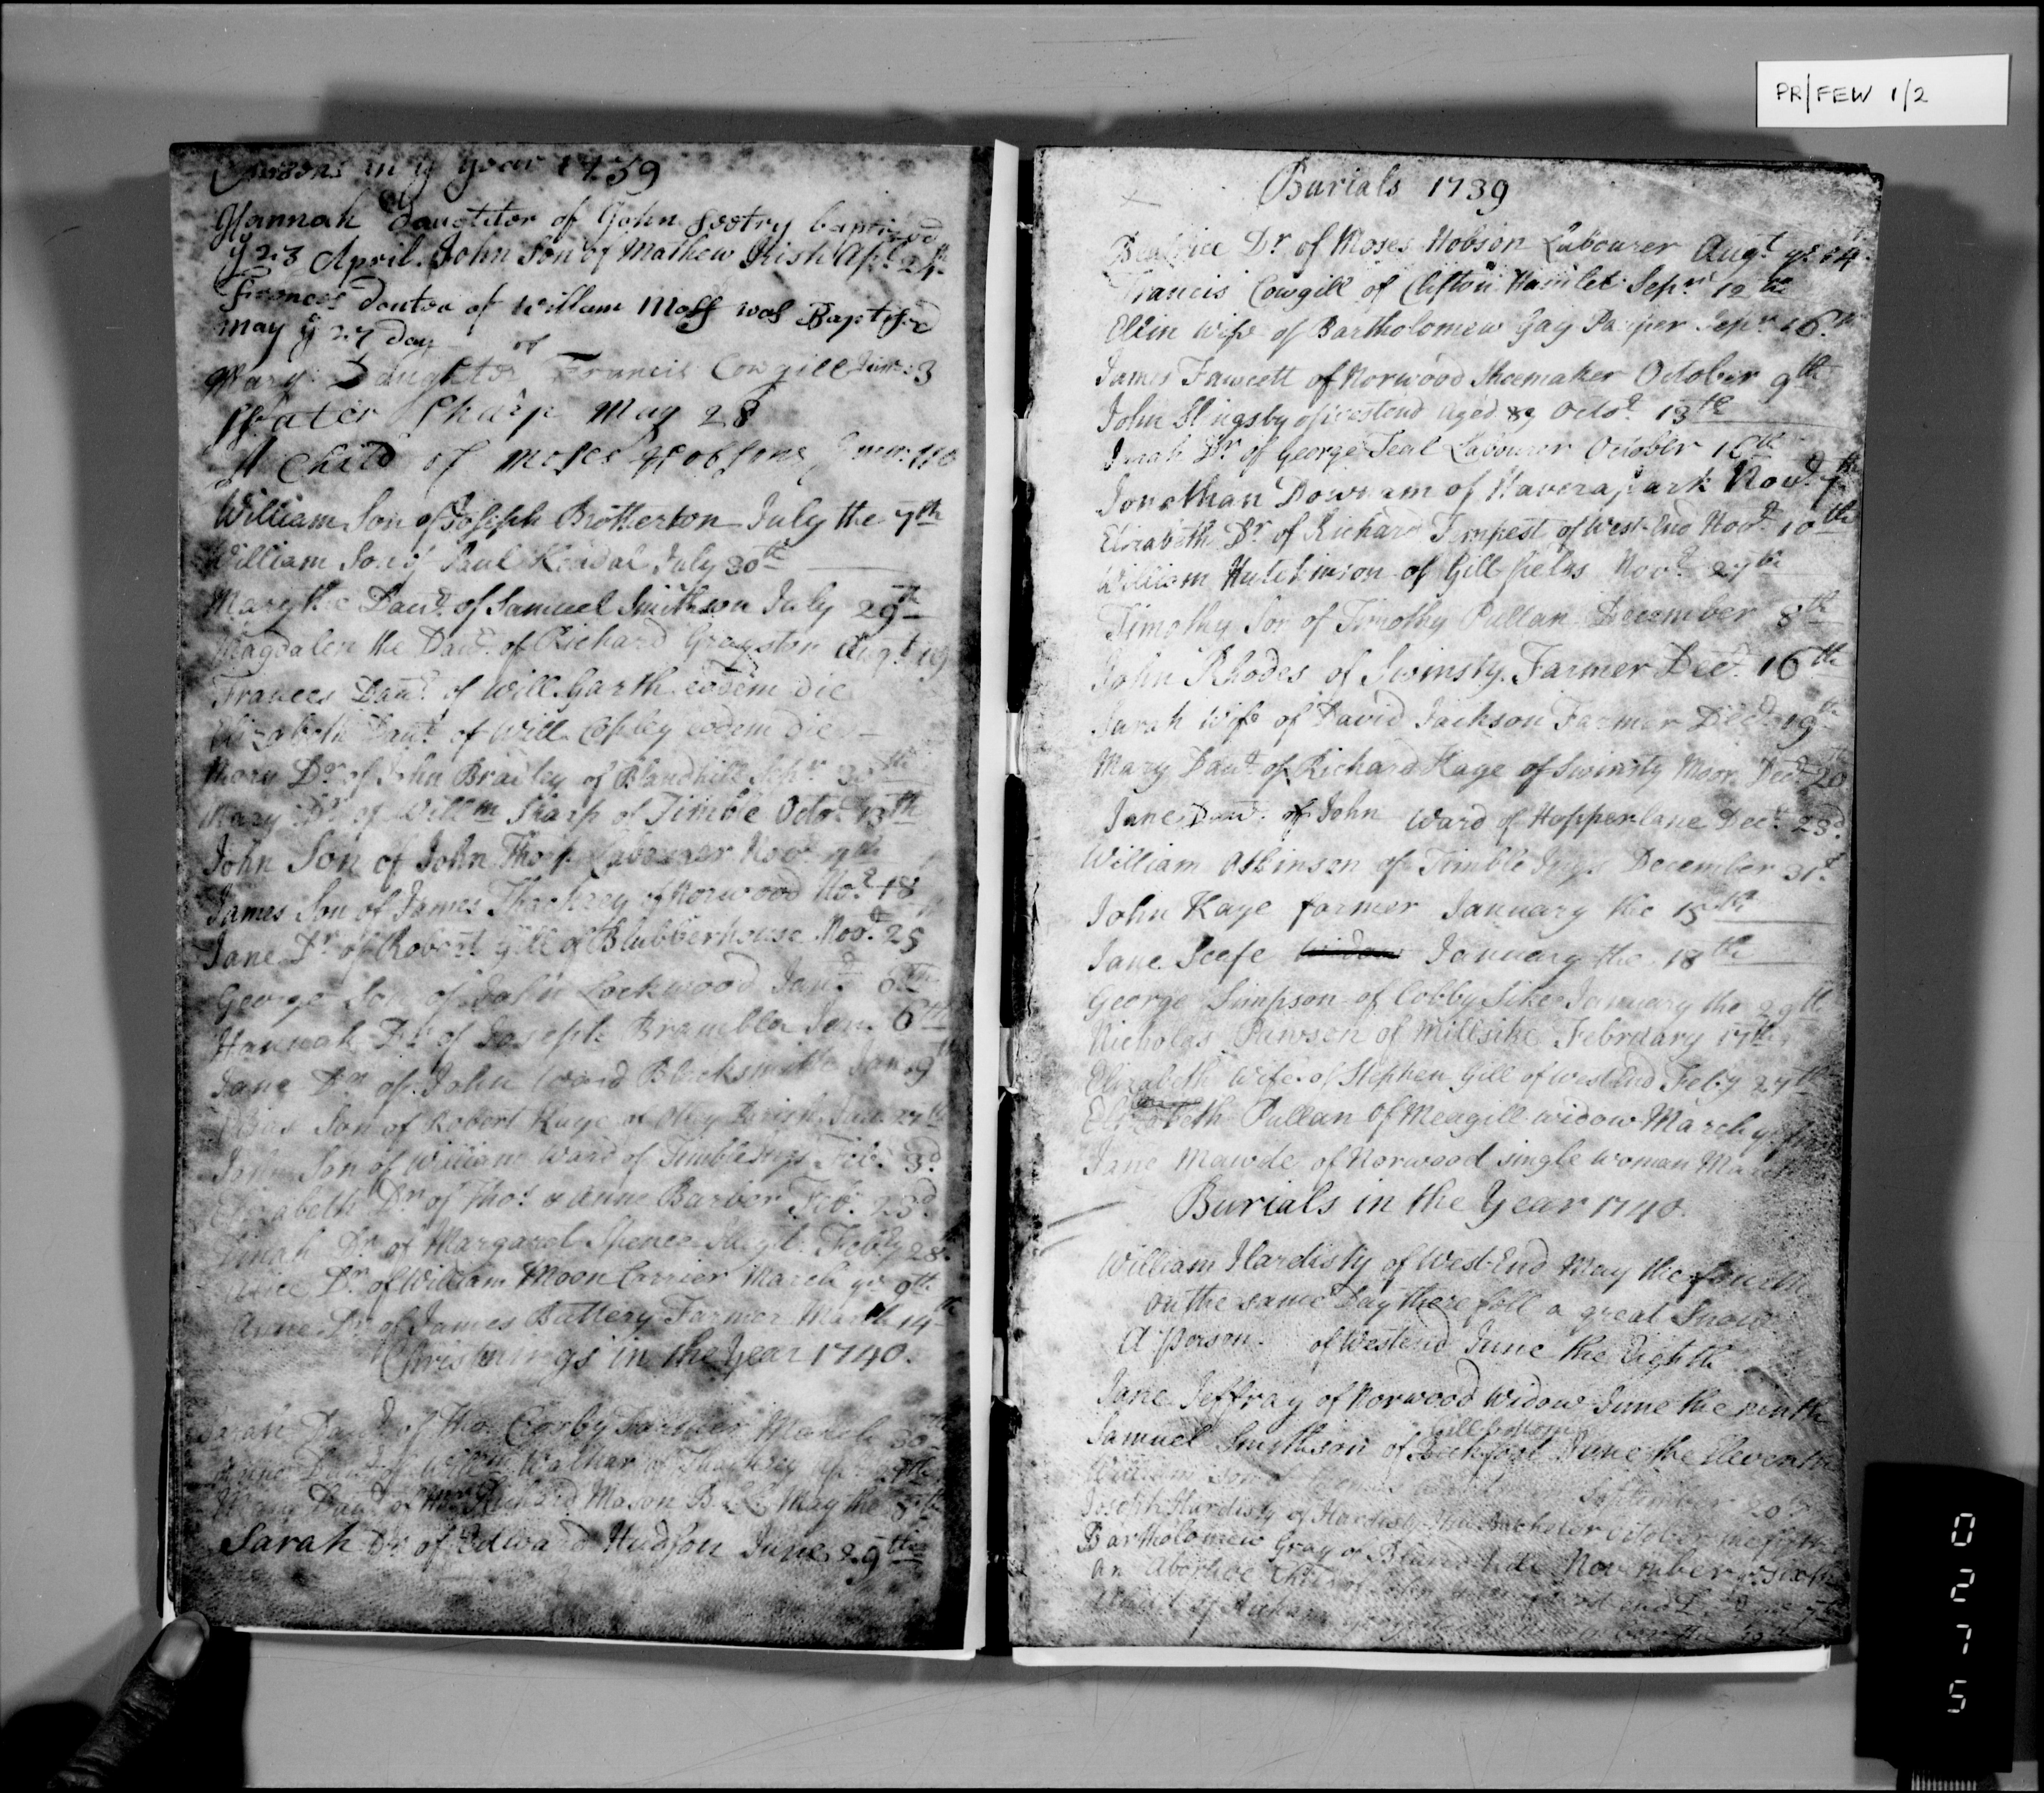 PR/FEW 1/2
in y year 1739
Hannah daughter of John baptized
y 23 April. John Son of Mathew Irish Apl 24th
Frances of William Moss was Baptised
May ye 27 Day
Mary Daughter of Francis Cowgill June 3
Pater Sharp May 28
A Child of Moses Hobsons
William Son of Joseph Brotherton July the 7th
William Son of Paul Kendal July 30th
Mary the Daur. of Samuel Smithson July 29th
Magdalen the Daur. of Richard Grayston Augt 19
Frances Daur. of Will. Garth eodem die
Elizabeth Daur. of Will. Copley eodem die
Mary Dr. of John Bradley of Blandhill Sepr. 30th
Mary Dr. of Willm Sharp of Timble Octor. 13th
John Son of John Thorp Labourer Nov.
James Son of James Thackrey of Norwood Nor. 18
Jane Dr. of Robert Gill of Blubberhouse Nov. 25
George Son of John Lockwood Jan. 6th
Hannah Dr. of Joseph Bramble Jan. 6th
Jane Dr. of John Ward Blacksmith Jan 19th
Son of Robert Kaye of Otley Parish Jan. 27th
John Son of William Ward of Timble Ings Feb. 3d
Elizabeth Dr. of Thos. & Anne Barber Feb. 23d
Dinah Dr. of Margaret Spence Febly 28
Alice Dr. of William Moon Carrier March ye 9th
Anne Dr. of James Buttery Farmer March 14th
Christnings in the Year 1740.
Sarah Daur. of Tho. Corby Farmer March 30th
Anne Daur. of Willm. Walker of
Mary Daur. of Mr. Richard Mason May the 8th
Sarah Dr. of Edward Hudson June 29th
Burials 1739
Beatrice Dr. of Moses Hobson Labourer Augt. ye 14
Francis Cowgill of Clifton Hamlet Sepr. 12th
Ellin wife of Bartholomew Gay Pauper Sepr. 16th
James Fawcett of Norwood Shoemaker October 9th
John Slingsby of westend aged 89 Octor. 13th
Dr. of George Teal Labourer October 16th
Jonathan Downam of Haverapark Novr. 7th
Elizabeth Dr. of Richard Tempest of West-End Novr. 10th
William Hutchinson of Gill fields Novr. 27th
Timothy Son of Timothy Pullan December 8th
John Rhodes of Swinsty Farmer Decr. 16th
Sarah Wife of David Jackson Farmer Decr. 19th
Mary Daur. of Richard Kaye of Swinsty Moor Decr. 20
Jane Daur. of John Ward of Hopperlane Decr. 23d.
William Atkinson of Timble Ings December 31t.
John Kaye farmer January the 15th
Jane Scafe widow January the 18th
George Simpson of Cobby Sike January the 29th
Nicholas Pawson of Millsike February 17th
Elizabeth Wife of Stephen Gill of West-End Feby 27th
Elizabeth Pullan of Meagill widow March ye
Jane Mawde of Norwood single woman March
Burials in the Year 1740.
William Hardisty of West-End May the fourth
on the same Day there fell a great Snow
A Person of Westend June the Eighth
Jane Jeffray of Norwood Widow June the ninth
gill bottom
Samuel Smithson of Beckfoot June the Eleventh
William Son of September 20th
Joseph Hardisty of Hardisty Hill Batchelor October the
Bartholomew Gray of November ye sixth
An Abortive Child of John
of Richard
0275